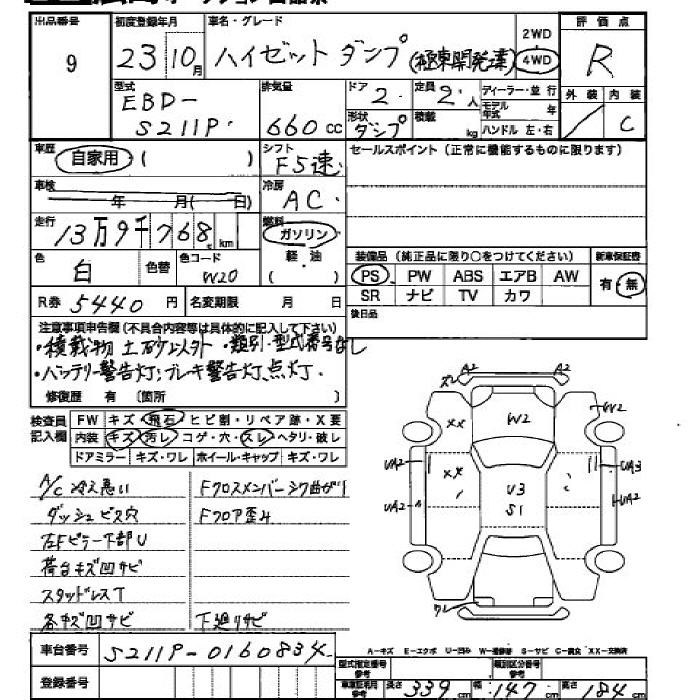 出品番号 初度登録年月 車名・グレード 2WD 評価点
9 23 10月 ハイゼット ダンプ (極東開発業) 4WD R
型式 排気量 ドア 定員 ディーラー・並行 外装 内装
EBD- 2 2人 モデル年式 年
S211P 660cc 形状 ダンプ 積載 kg ハンドル 左・右 / C
車歴 自家用 ( ) シフト F5速 セールスポイント (正常に機能するものに限ります)
車検 年 月( 日) 冷房 AC
走行 13万9千768 km 燃料 ガソリン
色 白 色替 色コード W20 軽・油 ( ) 装備品 (純正品に限り○をつけてください) 新車保証書
R券 5440円 名変期限 月 日 PS PW ABS エアB AW 有・無
SR ナビ TV カワ
注意事項申告欄 (不具合内容等は具体的に記入して下さい) 後日品
・積載物 土砂以外 ・類別・型式番号なし
・バッテリー警告灯、ブレーキ警告灯、点灯。
修復歴 有 〔箇所 〕
検査員記入欄 FW キズ・飛石・ヒビ割・リペア跡・X要
内装 キズ・汚レ・コゲ・穴・スレ・ヘタリ・破レ
ドアミラー キズ・ワレ ホイール・キャップ キズ・ワレ
A/C冷え悪い Fクロスメンバーシワ曲がり
ダッシュビス穴 Fフロア歪み
左Fピラー下部U
荷台キズ凹サビ
スタッドレスT
各キズ凹サビ 下廻りサビ
ズレ A2 A2
XX W2 W2
UA2 XX U3 UA3
UA2 S1 UA2
ワレ
A-キズ E-エクボ U-凹み W-補修跡 S-サビ C-腐食 XX-交換済
車台番号 S211P-0160834
登録番号
型式指定番号 類別区分番号
長さ 339cm 幅 147cm 高さ 184cm